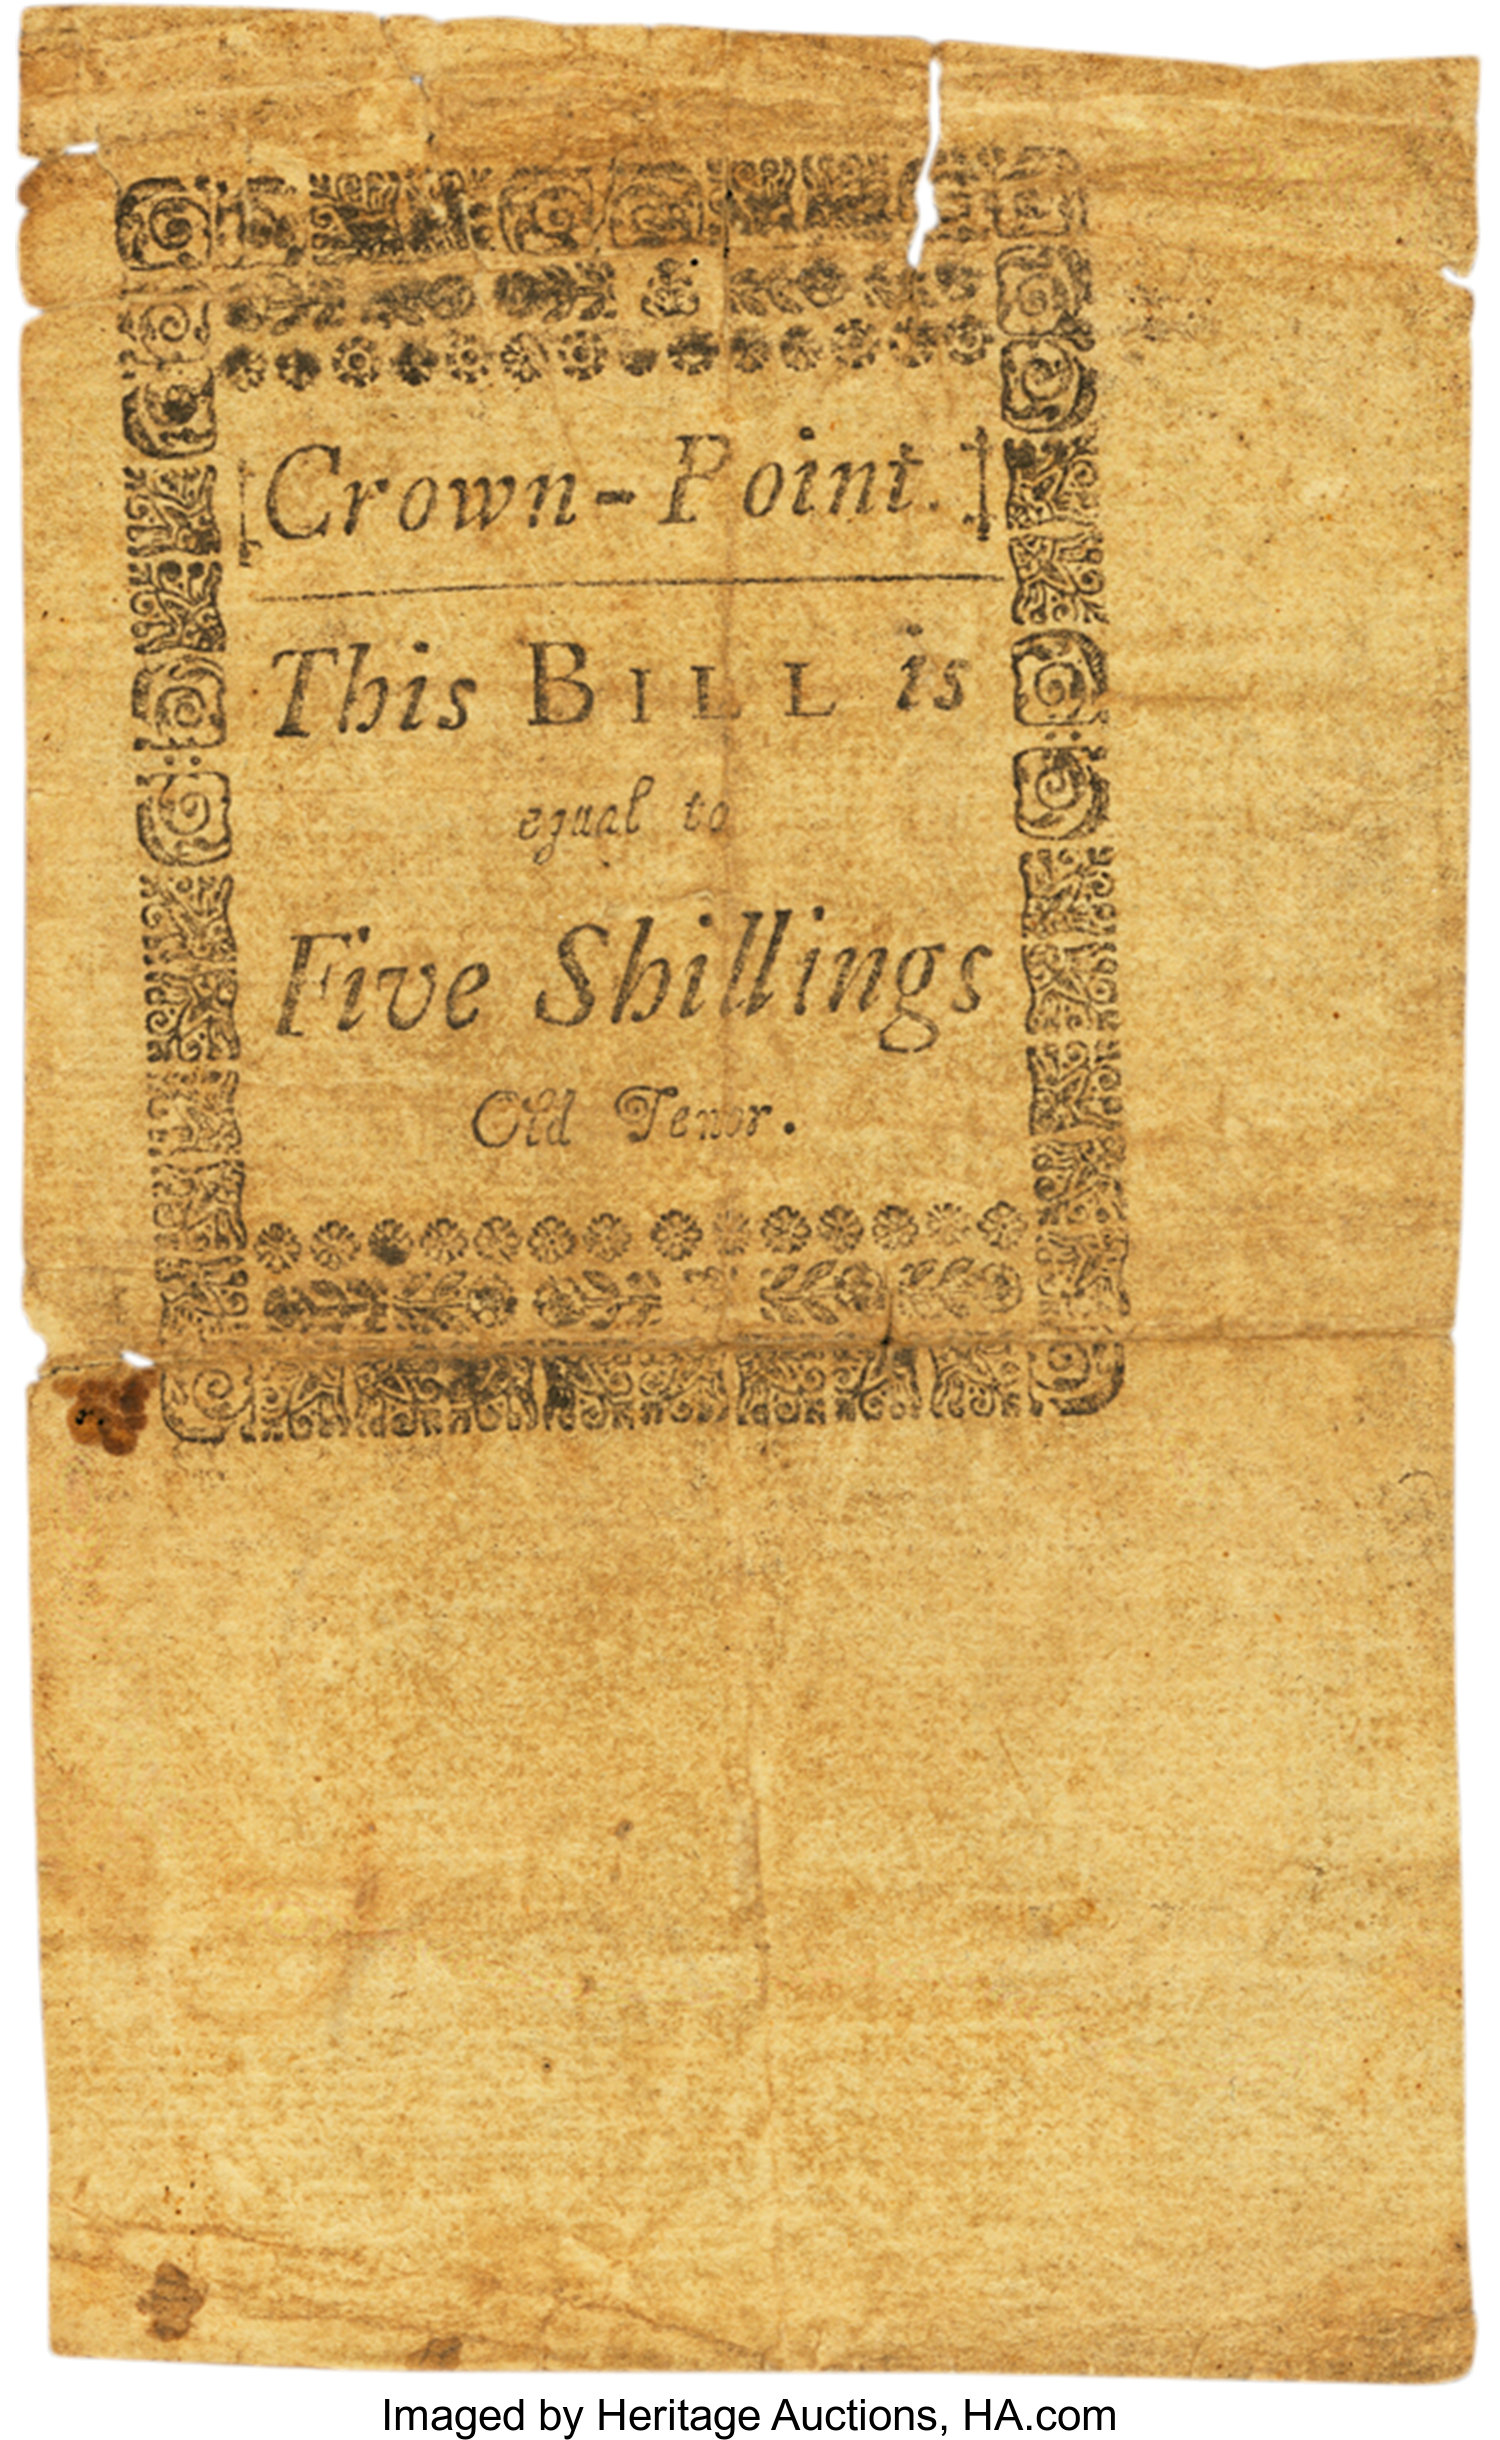 [Crown-Point.]
This BILL is
equal to
Five Shillings
Old Tenor.
Imaged by Heritage Auctions, HA.com